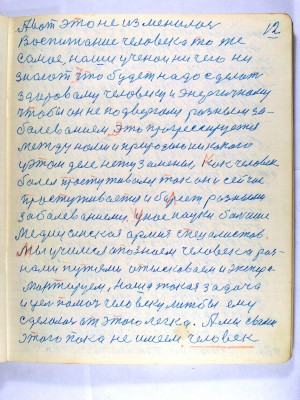 А вот это не изменилось 12
Воспитание человека то же
самое, наши ученои ничего ни
знают что будет надо сделат
здаровому человеку и энергичному
чтобы он не подвергали разным за-
болеванием. Это прогрессируется
между нами и природою никакого
у этом деле нету замены. Как человек
болел простуживалы так он и сейчас
простуживается и болеет разными
заболеваниеми. У нас науки большие
медицинская армия специалистов.
Мы учимся а познаем человека раз-
ными путями отысковаем и экспри-
мантируем, наша такая задача
и цел помоч человеку мтобы ему
сделалос от этого легка. А мы сваим
этого пока не имеем человек